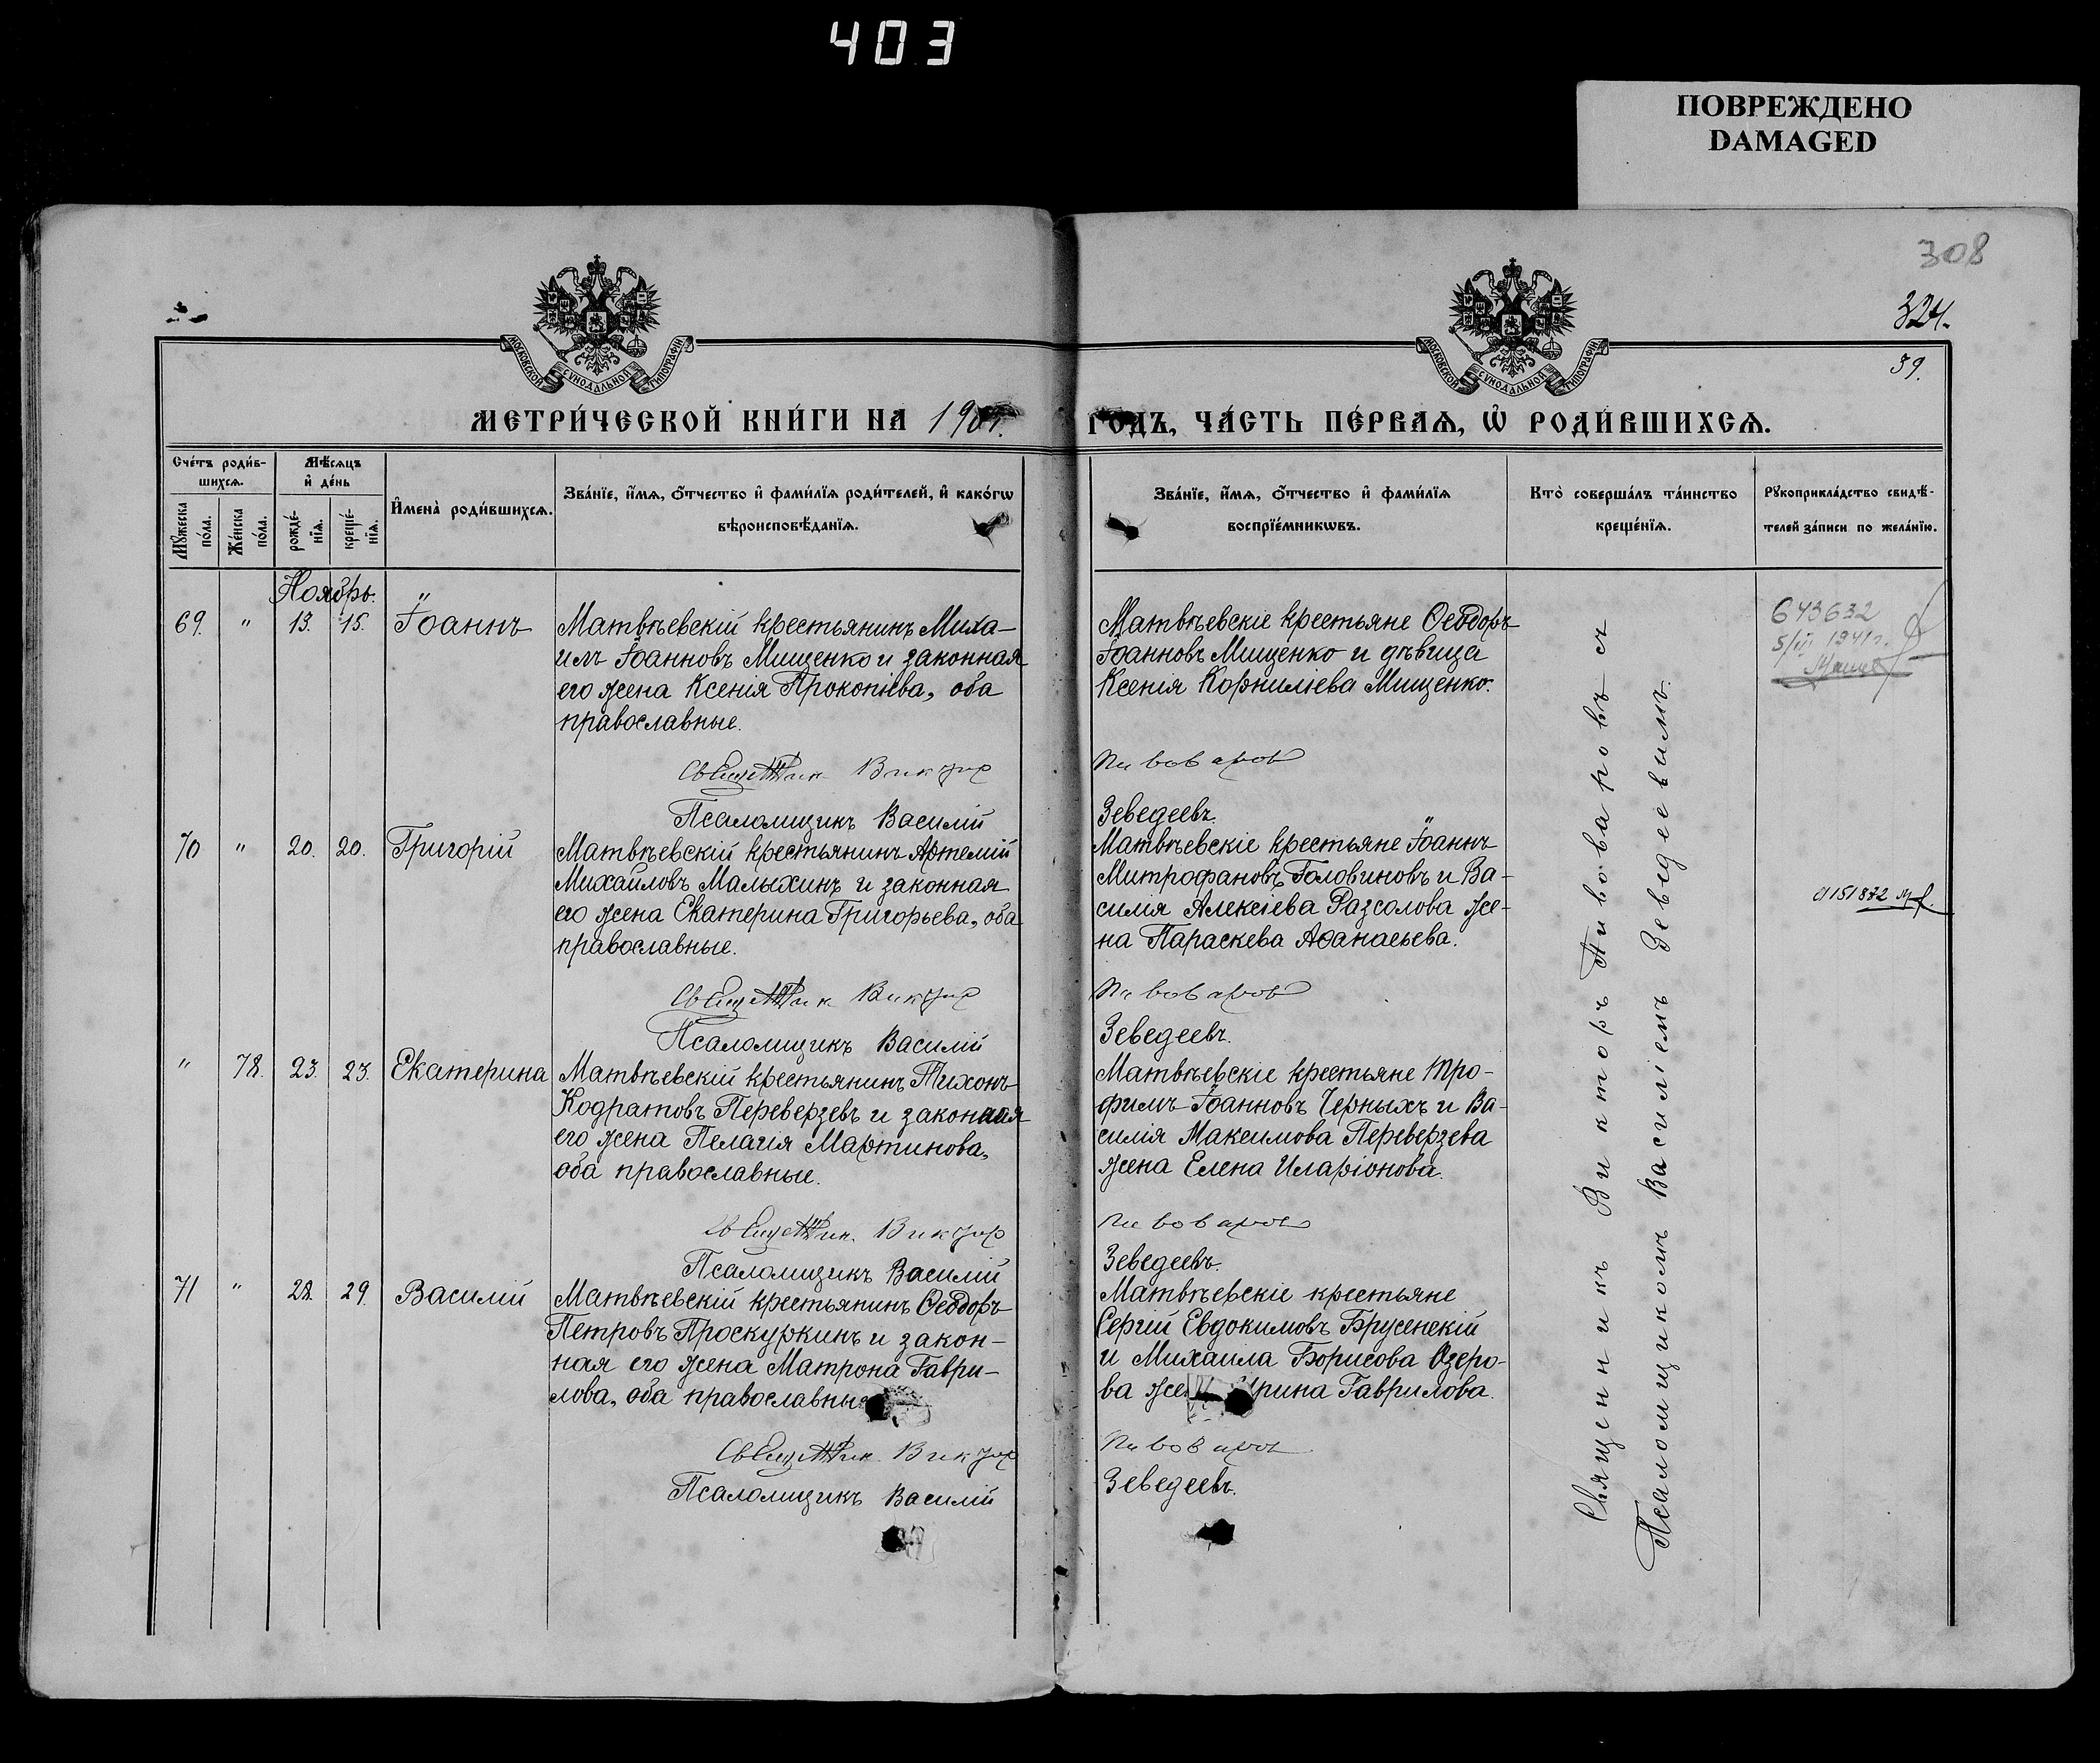 403
ПОВРЕЖДЕНО
DAMAGED
308
324.
39.
МОСКОВСКОЙ СѴНОДАЛЬНОЙ ТИПОГРАФІИ
МОСКОВСКОЙ СѴНОДАЛЬНОЙ ТИПОГРАФІИ
МЕТРИ́ЧЕСКОЙ КНИ́ГИ НА 190
ГОДЪ, ЧА́СТЬ ПЕ́РВАѦ, Ѡ҆ РОДИ́ВШИХСѦ.
Сче́тъ роди́в-
шихсѧ.
Мѣ́сѧцъ
и҆ де́нь
Мꙋ́жеска
по́ла.
Же́нска
по́ла.
рожде́-
нїѧ.
креще́-
нїѧ.
И҆мена̀ роди́вшихсѧ.
Зва́нїе, и҆́мѧ, ѻ҆́тчество и҆ фами́лїѧ роди́телей, и҆ како́гѡ
вѣроисповѣ́данїѧ.
Зва́нїе, и҆́мѧ, ѻ҆́тчество и҆ фами́лїѧ
воспрїе́мникѡвъ.
Кто̀ соверша́лъ та́инство
креще́нїѧ.
Рꙋкоприкла́дство свидѣ́-
телей за́писи по жела́нїю.
Ноябрь.
69. " 13. 15. Іоаннъ
Матвѣевскій крестьянинъ Миха-
илъ Іоанновъ Мищенко и законная
его жена Ксенія Прокопіева, оба
православные.
Священник Виктор
Псаломщикъ Василій
Матвѣевскіе крестьяне Ѳеодоръ
Іоанновъ Мищенко и дѣвица
Ксенія Корниліева Мищенко.
Пивоваров
Зеведеевъ.
643632
1941г.
70 " 20. 20. Григорій
Матвѣевскій крестьянинъ Артемій
Михайловъ Малыхинъ и законная
его жена Екатерина Григорьева, оба
православные.
Священник Виктор
Псаломщикъ Василій
Матвѣевскіе крестьяне Іоаннъ
Митрофановъ Головиновъ и Ва-
силія Алексіева Разсолова же-
на Параскева Аѳанасьева.
Пивоваров
Зеведеевъ.
151872
" 78. 23. 23. Екатерина
Матвѣевскій крестьянинъ Тихонъ
Кодратовъ Переверзевъ и законная
его жена Пелагія Мартинова,
оба православные.
Священник Виктор
Псаломщикъ Василій
Матвѣевскіе крестьяне Тро-
фимъ Іоанновъ Черныхъ и Ва-
силія Максимова Переверзева
жена Елена Иларіонова.
Пивоваров
Зеведеевъ.
71 " 28. 29. Василій
Матвѣевскій крестьянинъ Ѳеодоръ
Петровъ Проскуркинъ и закон-
ная его жена Матрона Гаври-
лова, оба православные
Священник Виктор
Псаломщикъ Василій
Матвѣевскіе крестьяне
Сергій Евдокимовъ Брусенскій
и Михаила Борисова Озеро-
ва Гаврилова.
Пивоваров
Зеведеевъ.
Священникъ Викторъ Пивоваровъ съ
Псаломщикомъ Василіемъ Зеведеевымъ.